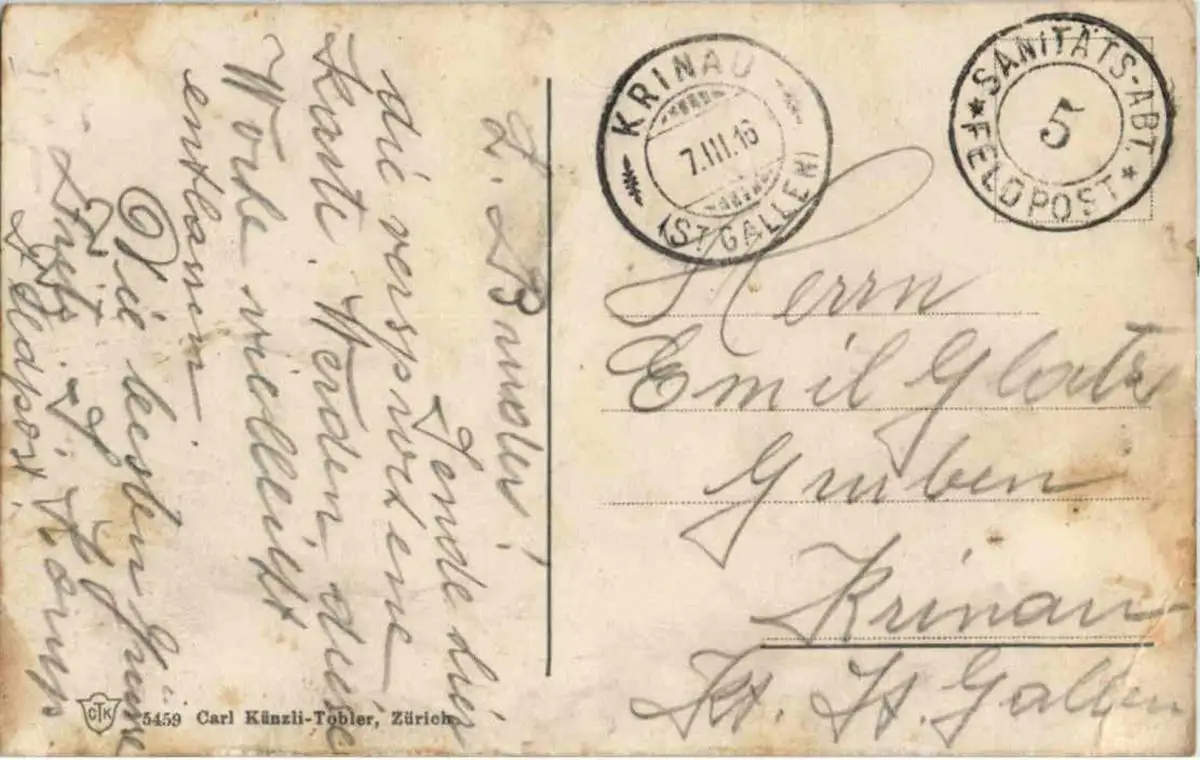 L. Bruder!
Sende dir
die versprochene
Karte. Werden diese
Woche vielleicht
entlassen
Die besten Grüsse
KRINAU
7.III.16
(ST. GALLEN)
SANITÄTS-ABT.
5
★ FELDPOST ★
Herrn
Emil Glatz
Gruben
Krinau
Kt. St. Gallen
CTK
5459 Carl Künzli-Tobler, Zürich.